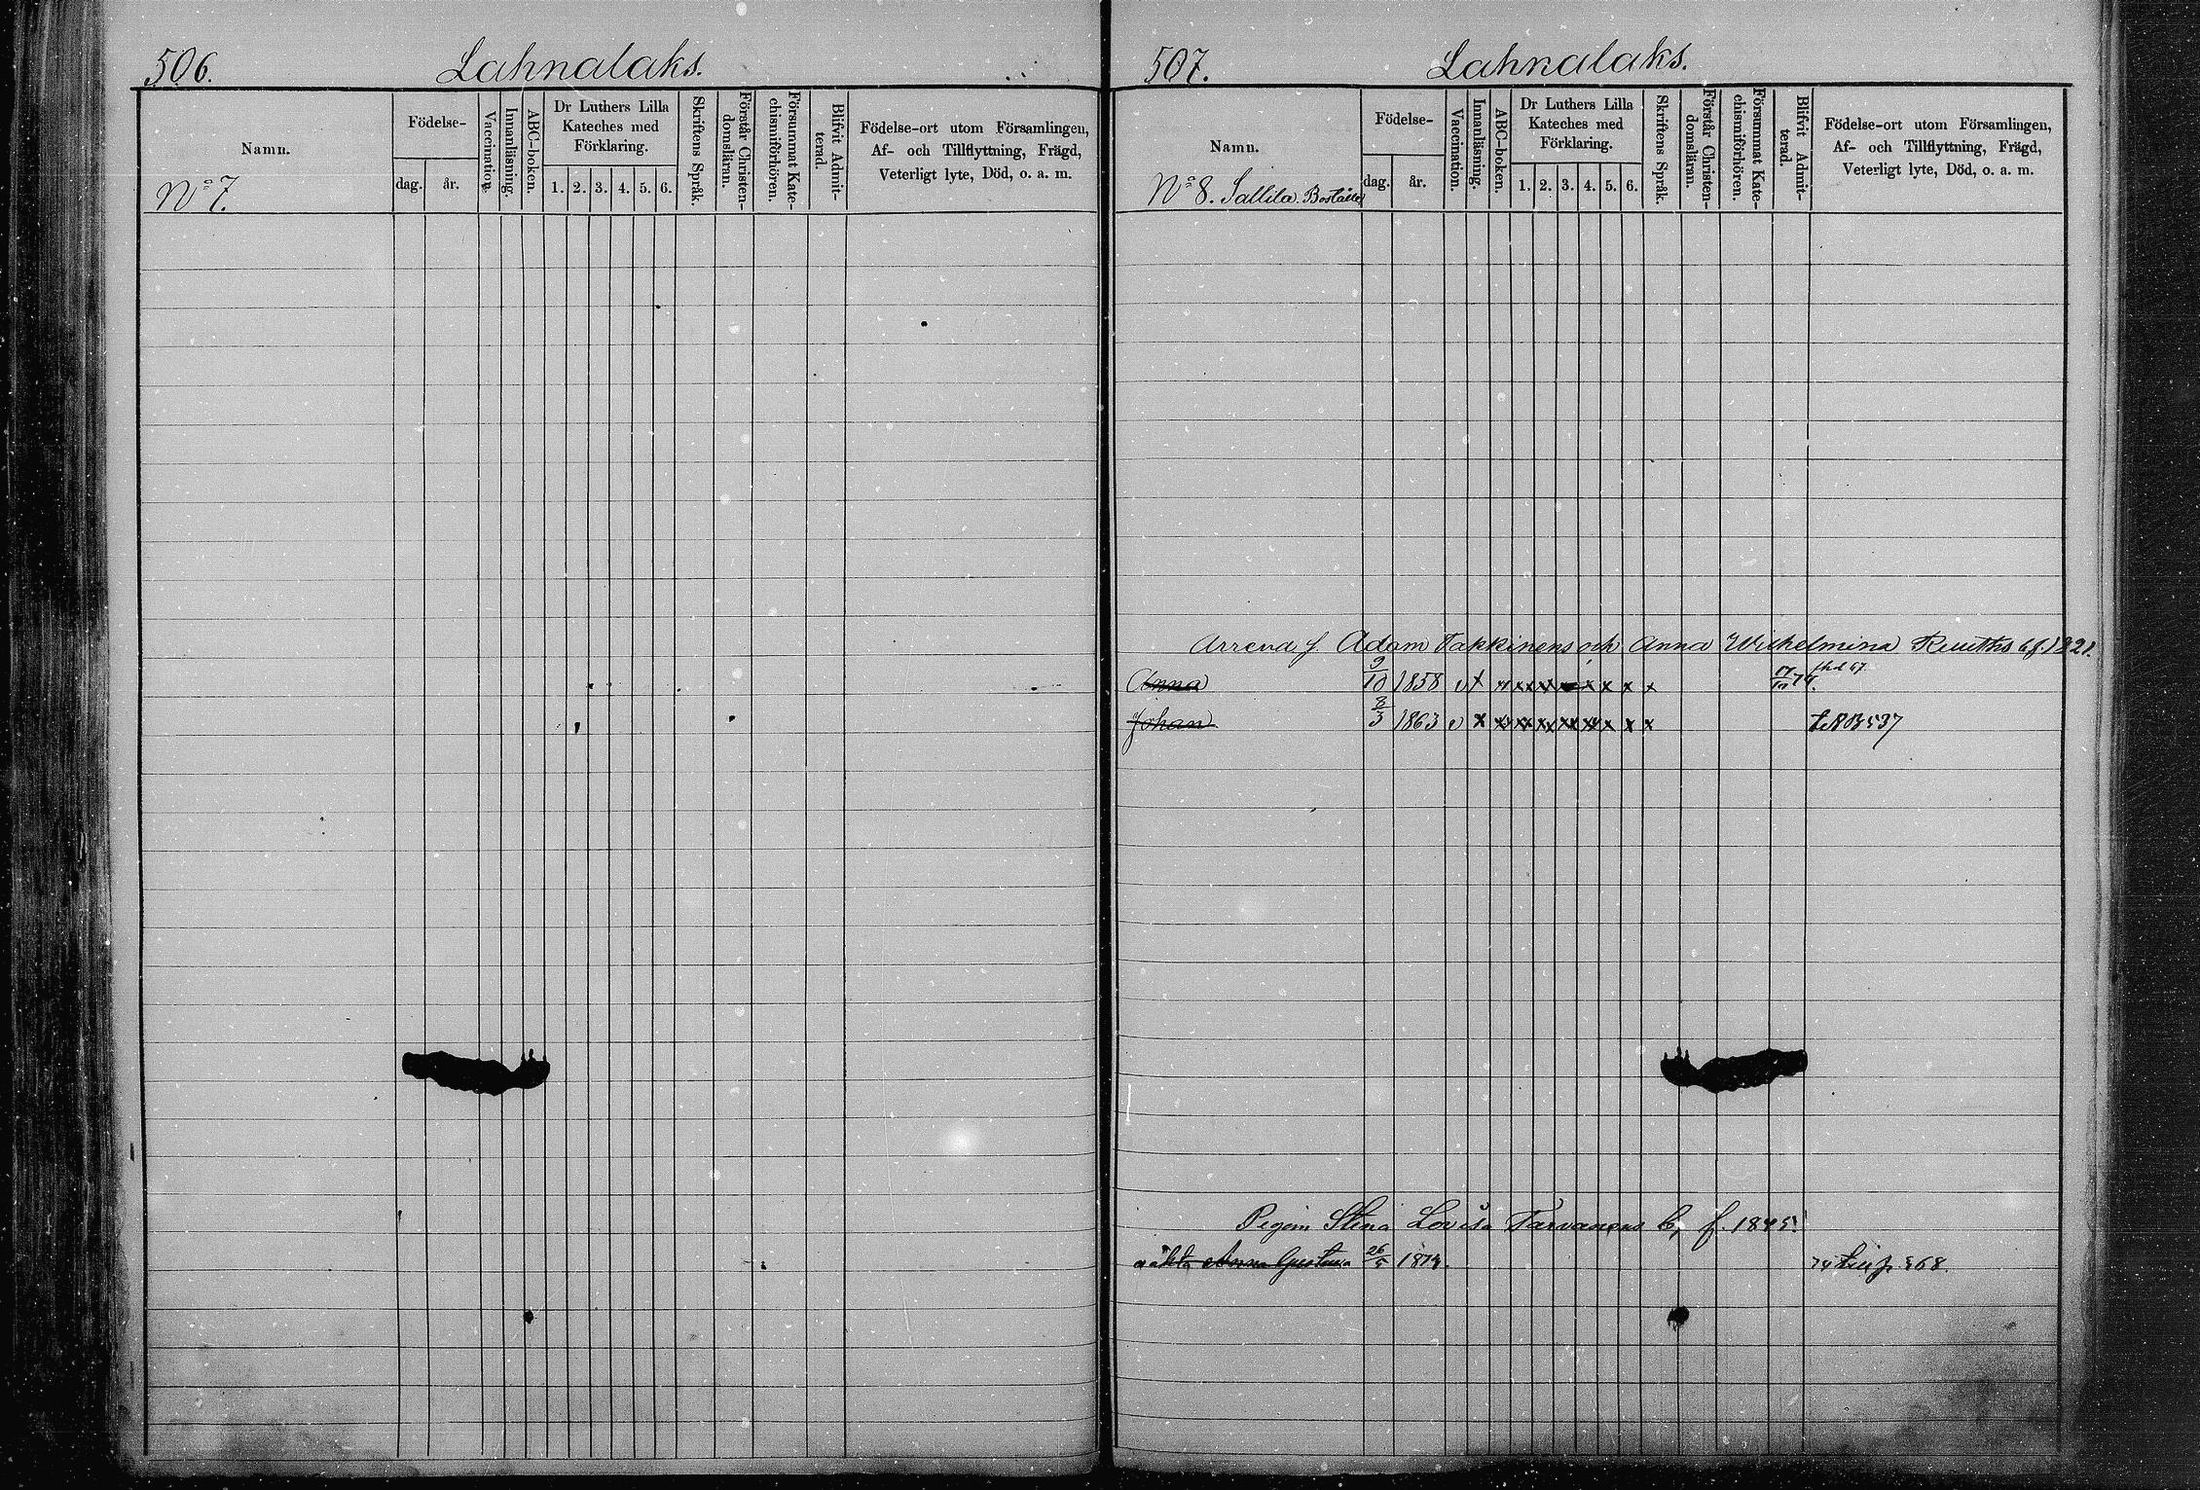 506. Lahnalaks.
Namn.
Födelse-
dag. år.
Vaccination.
Innanläsning.
ABC-boken.
Dr Luthers Lilla
Kateches med
Förklaring.
1. 2. 3. 4. 5. 6.
Skriftens Språk.
Förstår Christen-
domsläran.
Försummat Kate-
chismiförhören.
Blifvit Admit-
terad.
Födelse-ort utom Församlingen,
Af- och Tillflyttning, Frägd,
Veterligt lyte, Död, o. a. m.
No 7.
507. Lahnalaks.
Namn.
Födelse-
dag. år.
Vaccination.
Innanläsning.
ABC-boken.
Dr Luthers Lilla
Kateches med
Förklaring.
1. 2. 3. 4. 5. 6.
Skriftens Språk.
Förstår Christen-
domsläran.
Försummat Kate-
chismiförhören.
Blifvit Admit-
terad.
Födelse-ort utom Församlingen,
Af- och Tillflyttning, Frägd,
Veterligt lyte, Död, o. a. m.
No 8. Sallila Boställe
Arrend f. Adam Takkinens och Anna Wilhelmina b. f. 1821.
Anna 9/10 1858 v x x x x x x x x x x
Johan 3/3 1863 v x x x x x x x x x 537
Pigan Stina Lovisa Tarvanens b, f. 1845.
oäkta Anna Gustava 26/5 1874. 74 568.